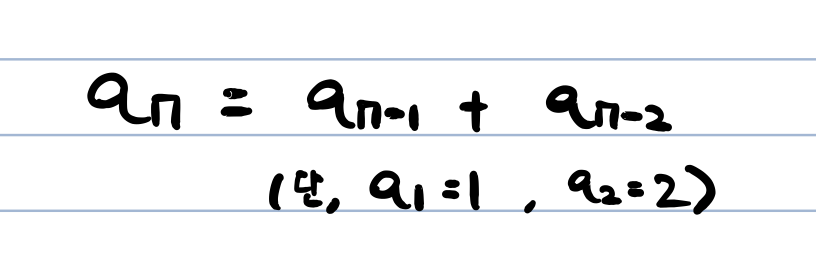 aₙ = aₙ₋₁ + aₙ₋₂
(단, a₁=1 , a₂=2)